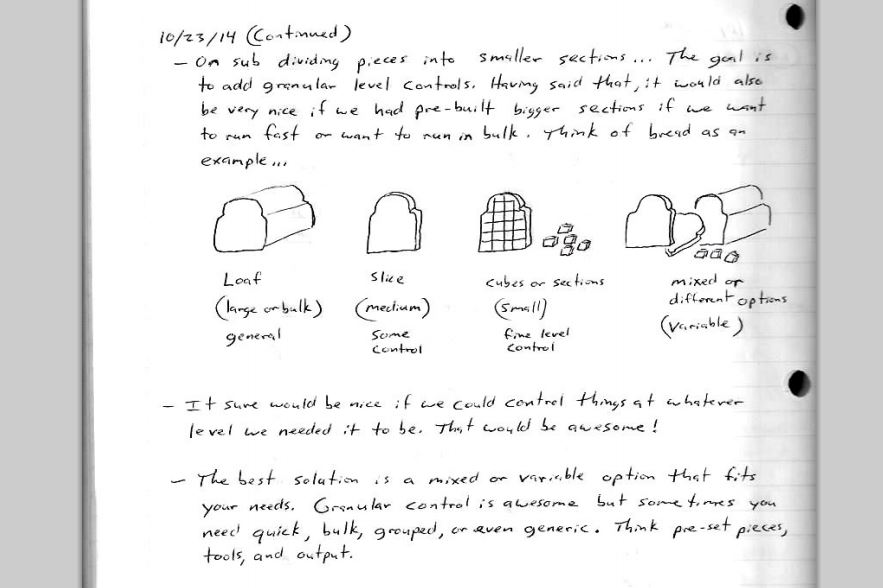 10/23/14 (Continued)
- On sub dividing pieces into smaller sections... The goal is
to add granular level controls. Having said that, it would also
be very nice if we had pre-built bigger sections if we want
to run fast or want to run in bulk. Think of bread as an
example...
Loaf
(large or bulk)
general
Slice
(medium)
Some
control
cubes or sections
(small)
fine level
control
mixed or
different options
(variable)
- It sure would be nice if we could control things at whatever
level we needed it to be. That would be awesome!
- The best solution is a mixed or variable option that fits
your needs. Granular control is awesome but sometimes you
need quick, bulk, grouped, or even generic. Think pre-set pieces,
tools, and output.